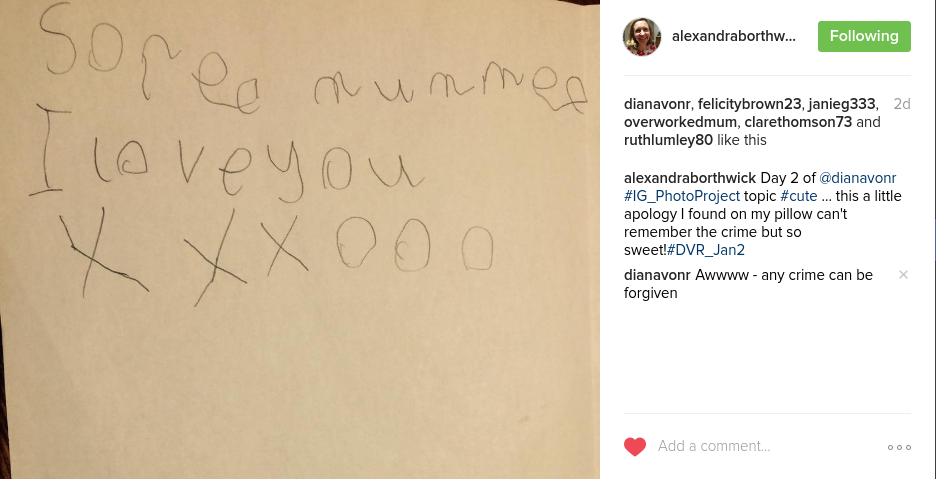 Soree mummee
I love you
X X X O O O
alexandraborthw...
Following
dianavonr, felicitybrown23, janieg333, 2d
overworkedmum, clarethomson73 and
ruthlumley80 like this
alexandraborthwick Day 2 of @dianavonr
#IG_PhotoProject topic #cute ... this a little
apology I found on my pillow can't
remember the crime but so
sweet!#DVR_Jan2
dianavonr Awwww - any crime can be
forgiven
Add a comment...